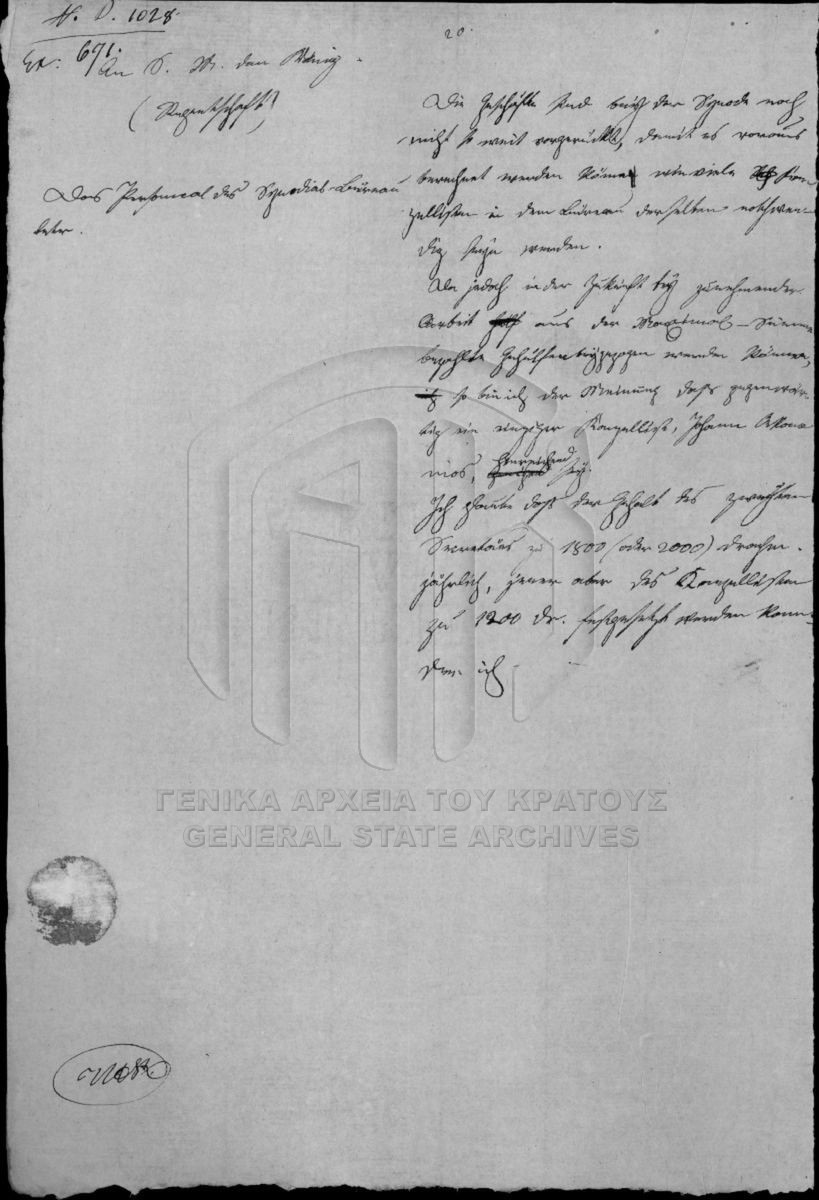 N. D. 1028.
Ex: 691.
An S. M. den König.
(Regentschaft)
Das Personal des Synodial-Büreau
betr.
20.
Die Geschäfte sind bey der Synode noch
nicht so weit vorgerückt, damit es voraus
berechnet werden könne wie viele Kan-
zellisten in dem Büreau derselben nothwen-
dig seyn werden.
Da jedoch in der Zukunft bey zunehmender
Arbeit aus der Maximal-Summe
bezahlte Gehülfen beygezogen werden können,
so bin ich der Meinung daß gegenwär-
tig ein einziger Kanzellist, Johann Okono-
mos, hinreichend sey.
Ich glaube daß der Gehalt des zweiten
Secretärs zu 1800 (oder 2000) Drachm.
jährlich, jener aber des Kanzellisten
zu 1200 Dr. festgesetzt werden kann.
Den ich
ΓΕΝΙΚΑ ΑΡΧΕΙΑ ΤΟΥ ΚΡΑΤΟΥΣ
GENERAL STATE ARCHIVES